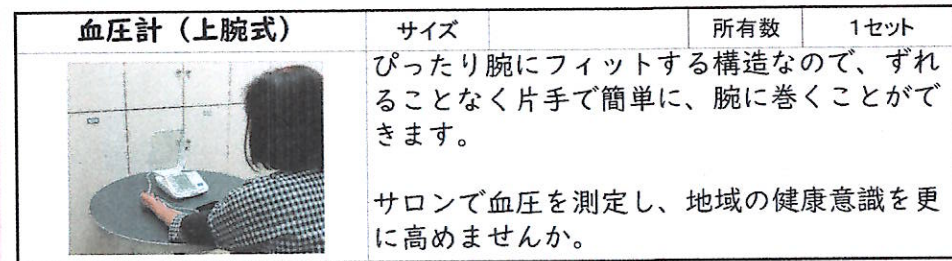 血圧計（上腕式）
サイズ
所有数
1セット
ぴったり腕にフィットする構造なので、ずれ
ることなく片手で簡単に、腕に巻くことがで
きます。
サロンで血圧を測定し、地域の健康意識を更
に高めませんか。